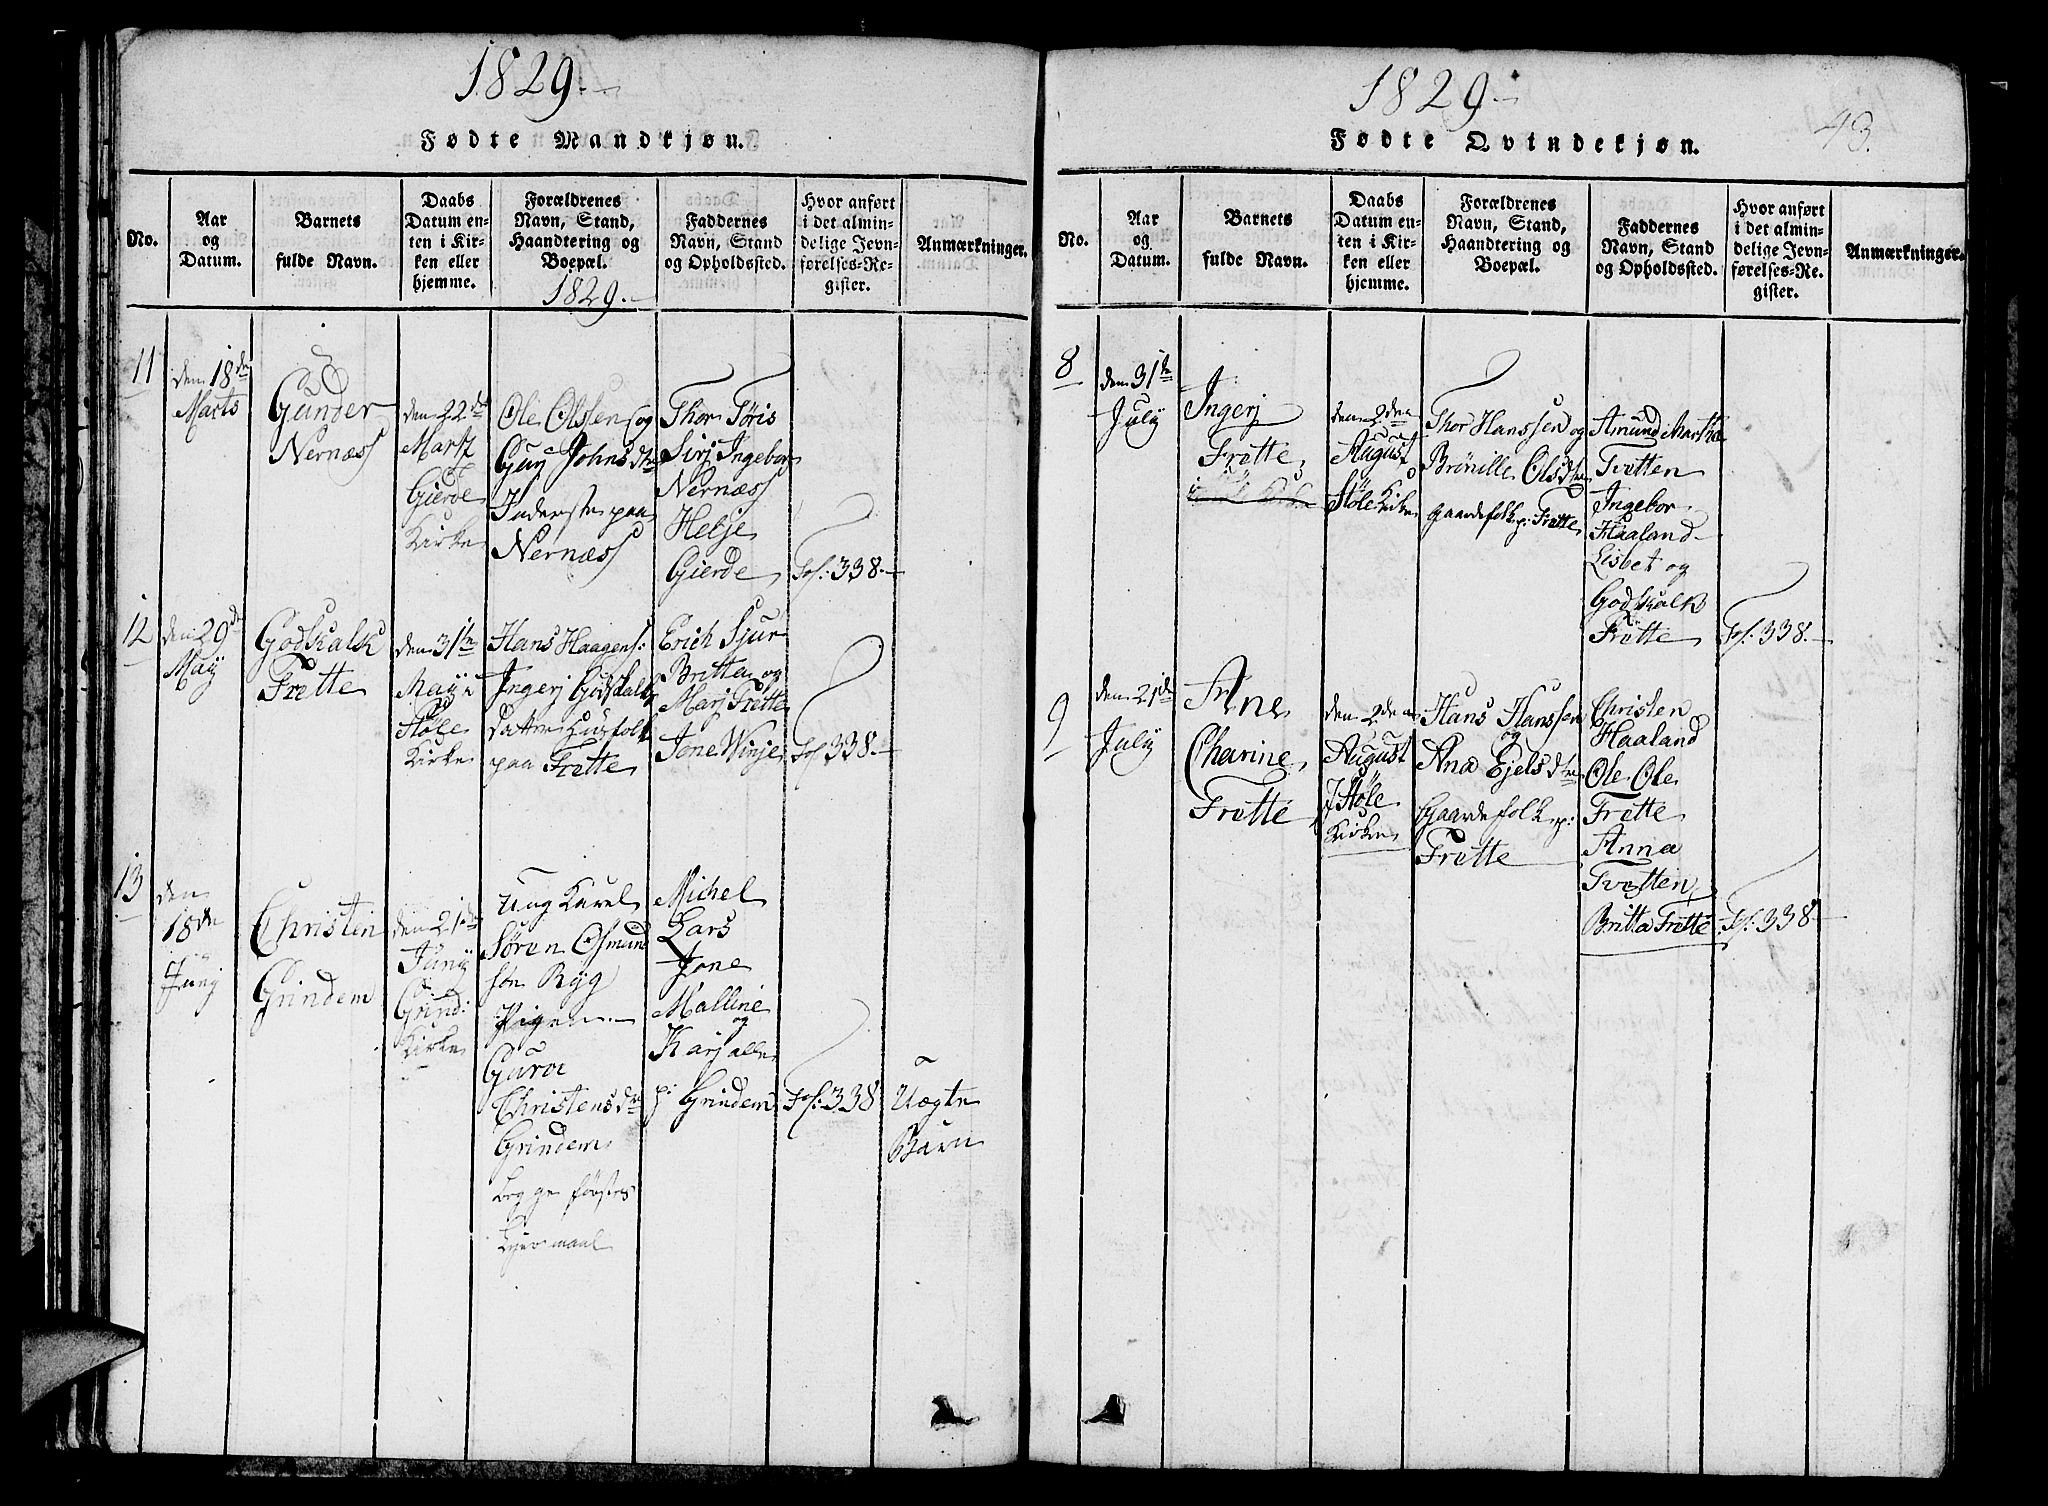 1829.
Fødte Mandkjøn.
No.
Aar
og
Datum.
Barnets
fulde Navn.
Daabs
Datum en-
ten i Kir-
ken eller
hjemme.
Forældrenes
Navn, Stand,
Haandtering og
Boepæl.
1829.
Faddernes
Navn, Stand
og Opholdssted.
Hvor anført
i det almin-
delige Jevn-
førelses-Re-
gister.
Anmærkninger.
11
den 18de
Marts
Gunder
Nernæss
den 22de
Marts
Gierde
Kirke
Ole Olssen og
Gurj Johnsdtr
Inderste paa
Nernæss
Thor Tøris
Sirj Ingebor
Nernæss
Helje
Gierde
Fol: 338.
12
den 29de
May
Godskalk
Frette
den 31te
May i
Støle
Kirke
Hans Haagens:
Ingerj Godskalk
datter Husfolk
paa Frette
Erich Sjur
Britta og
Marj Frette
Jone Winje
Fol 338.
13
den
18de
Junj
Christen
Grindem
den 21de
Juny
Grind:
Kirke
Ung Karel
Søren Osmund
søn Ryg
Pigen
Guroe
Christensdtr
Grindem
begge første
Leyermaal
Michel
Lars
Jone
Malline
og
Karj alle
p: Grindem
Fol: 338
Uægte
Barn
1829.
43.
Fødte Qvindekjøn.
No.
Aar
og
Datum.
Barnets
fulde Navn.
Daabs
Datum en-
ten i Kir-
ken eller
hjemme.
Forældrenes
Navn, Stand,
Haandtering og
Boepæl.
Faddernes
Navn, Stand
og Opholdssted.
Hvor anført
i det almin-
delige Jevn-
førelses-Re-
gister.
Anmærkninger.
8
den 31te
July
Ingerj
Frette
den 2den
August
Støle Kirke
Thor Hanssen og
Brønille Olsdtr
gaardefolk p: Frette
Amund Martha
Tvetten
Ingebor
Haaland
Lisbet og
Godskalk
Frette
Fol: 338.
9
den 21de
July
Ane
Charine
Frette
den 2den
August
J Støle
Kirke
Hans Hanssen
og
Ana Ejelsdtr
Gaardefolk p:
Frette
Christen
Haaland
Ole Ole
Frette
Anna
Tvetten
Britta Frette
Fol: 338